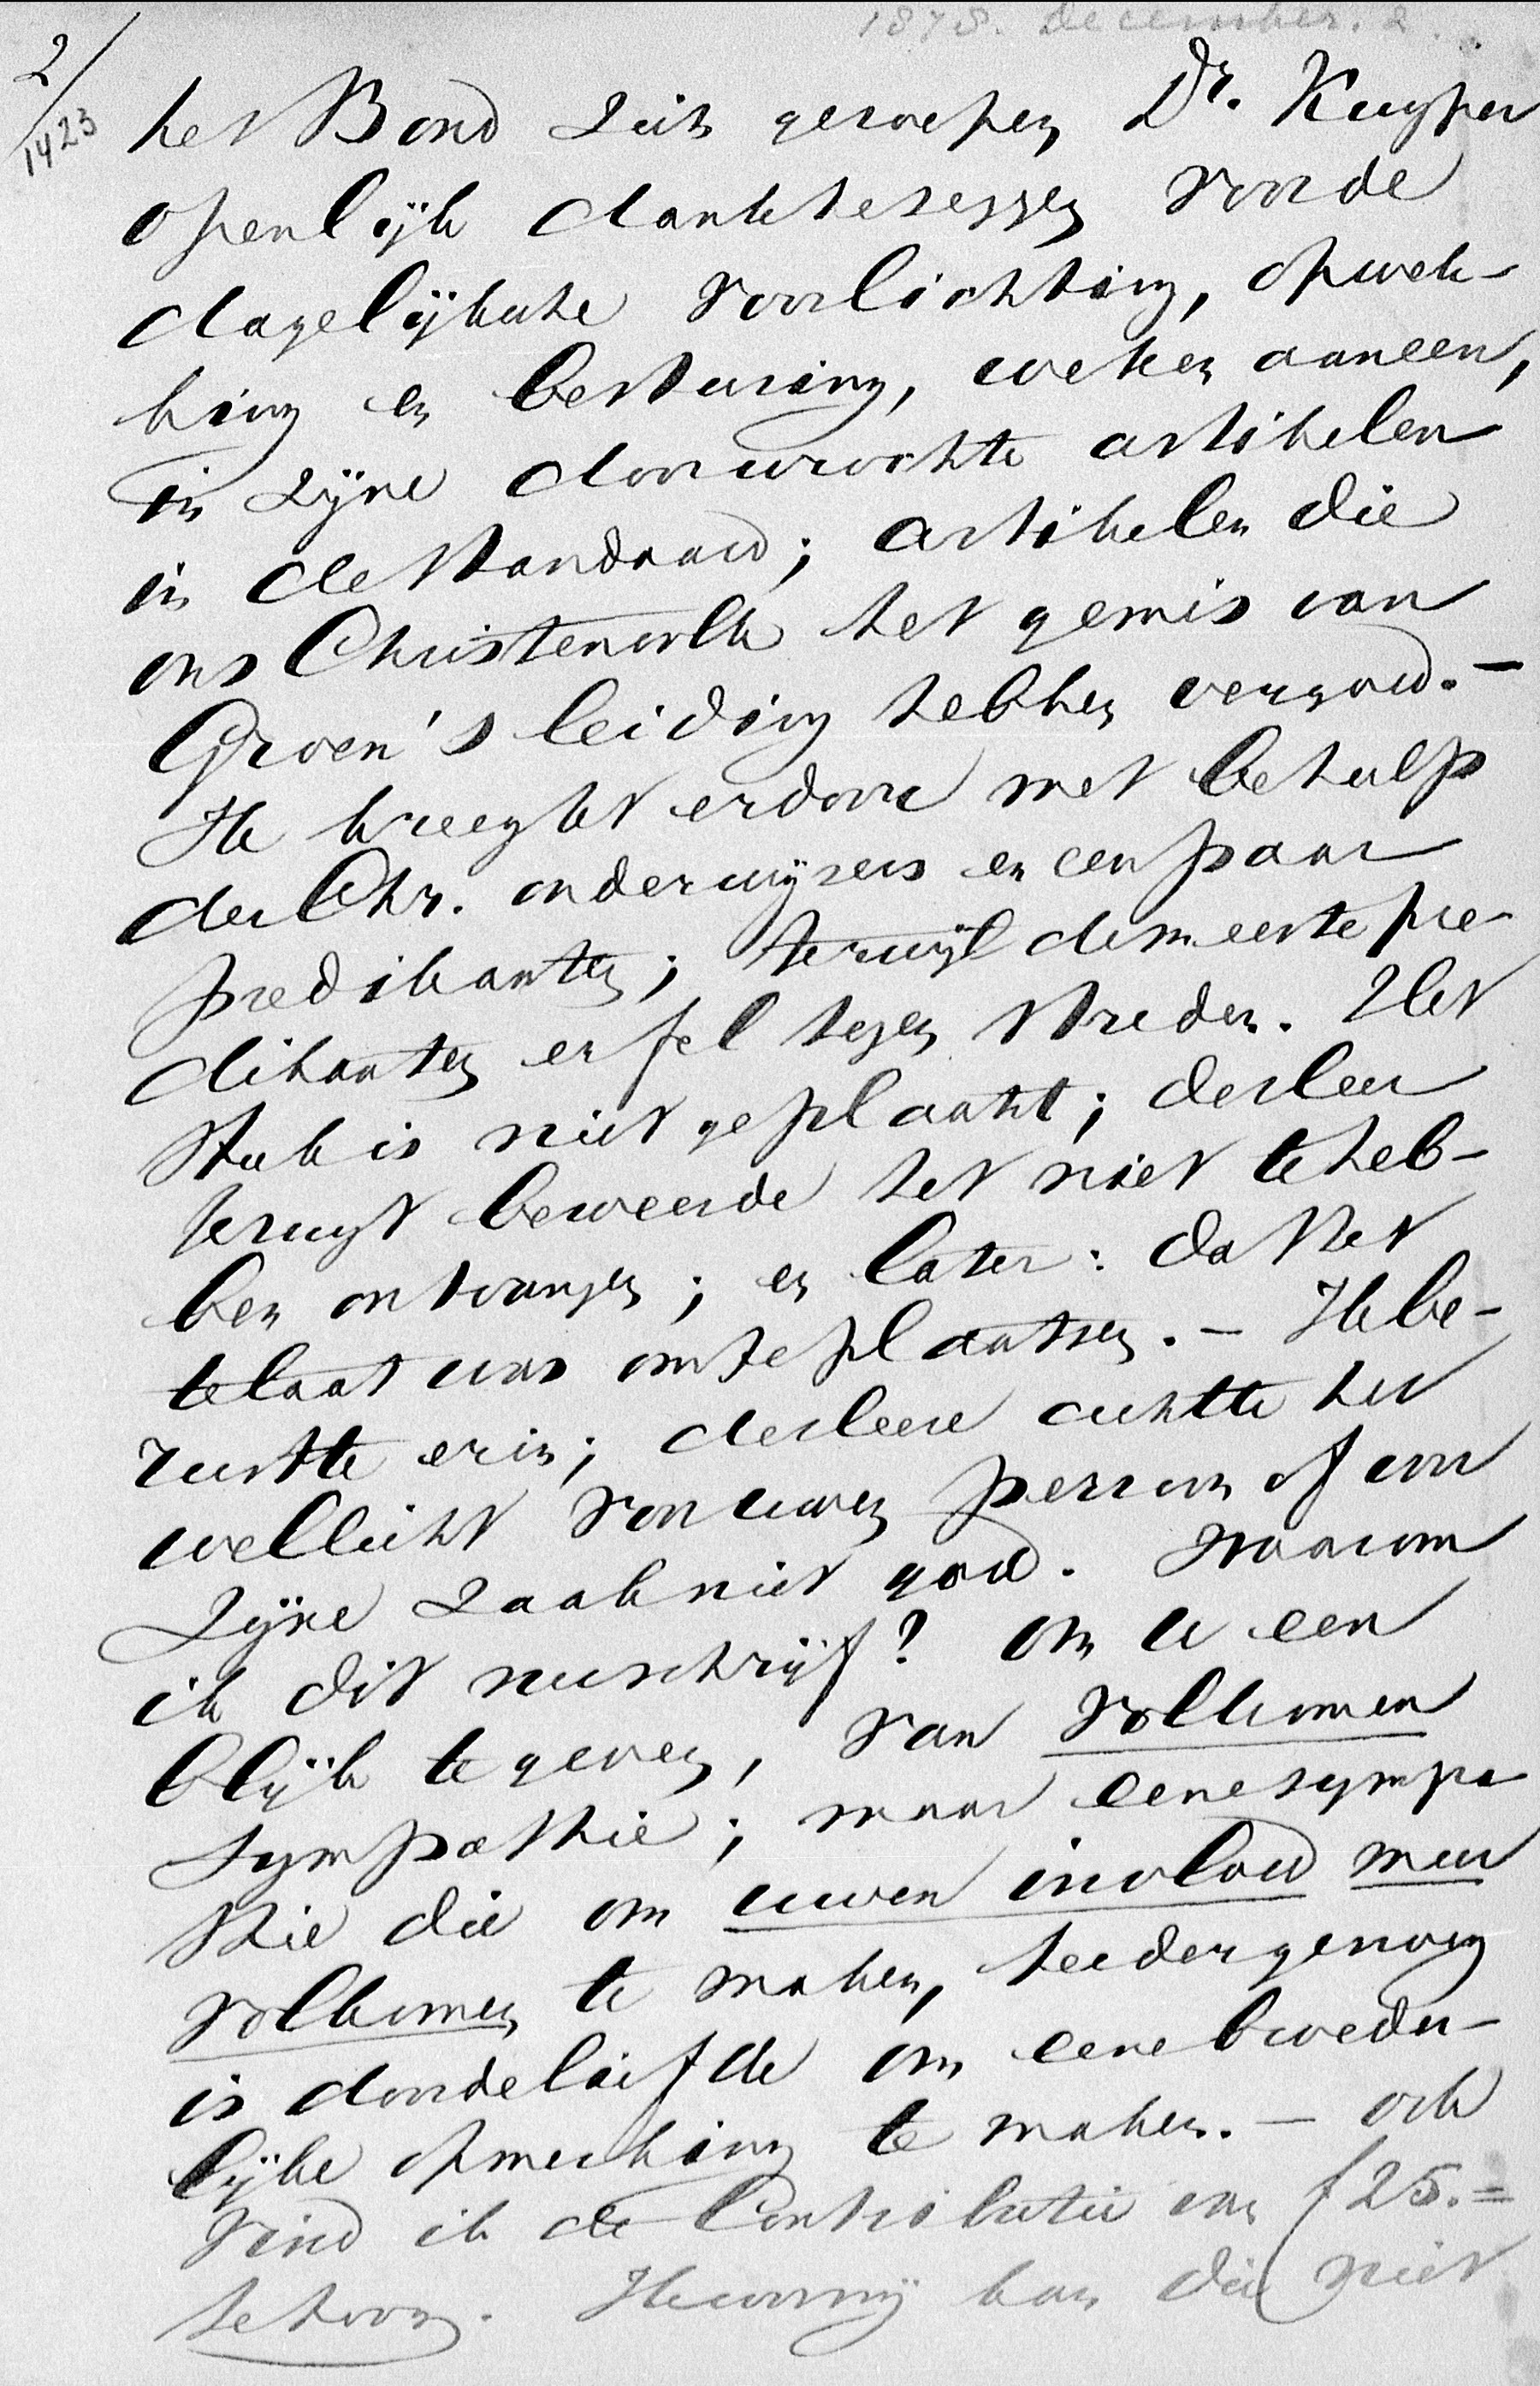 1878. December. 2.
2/1423
het Bond zich geroepen Dr. Kuyper
openlijk dank te zeggen voor de
dagelijksche voorlichting, opwek-
king en besturing, weken aaneen,
in zijne doorwrochte artikelen
in de Standaard; artikelen die
ons Christenvolk het gemis van
Groen's leiding hebben vergoed. -
Ik kreeg het er door met behulp
der Chr. onderwijzers en een paar
predikanten; terwijl de meeste pre-
dikanten er fel tegen streden. Het
Stuk is niet geplaatst; der Leer
terugt beweerde het niet te heb-
ben ontvangen; en later: dat het
te laat was om te plaatsen. - Ik be-
rustte erin; der Leer achtte het
wellicht voor uwen persoon of voor
zijne zaak niet goed. Waarom
ik dit nu schrijf? Om u een
blijk te geven, van volkomen
sympathie; maar eene sympa
thie die om uwen invloed meer
volkomen te maken, teeder genoeg
is door de liefde om eene broeder-
lijke opmerking te maken. - ook
vind ik de Contributie van f 25.=
te hoog. Ik voor mij kan die niet